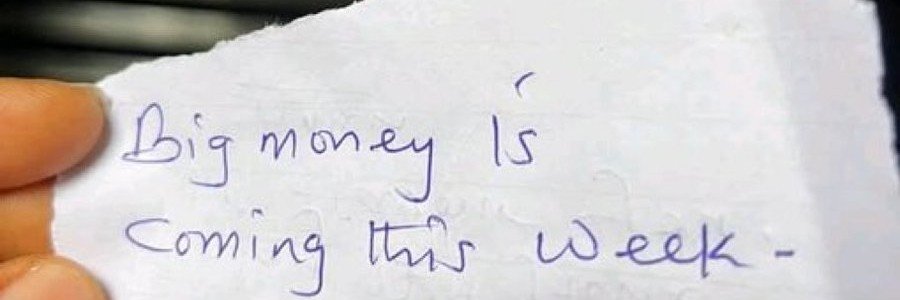 Big money Is
Coming this week -